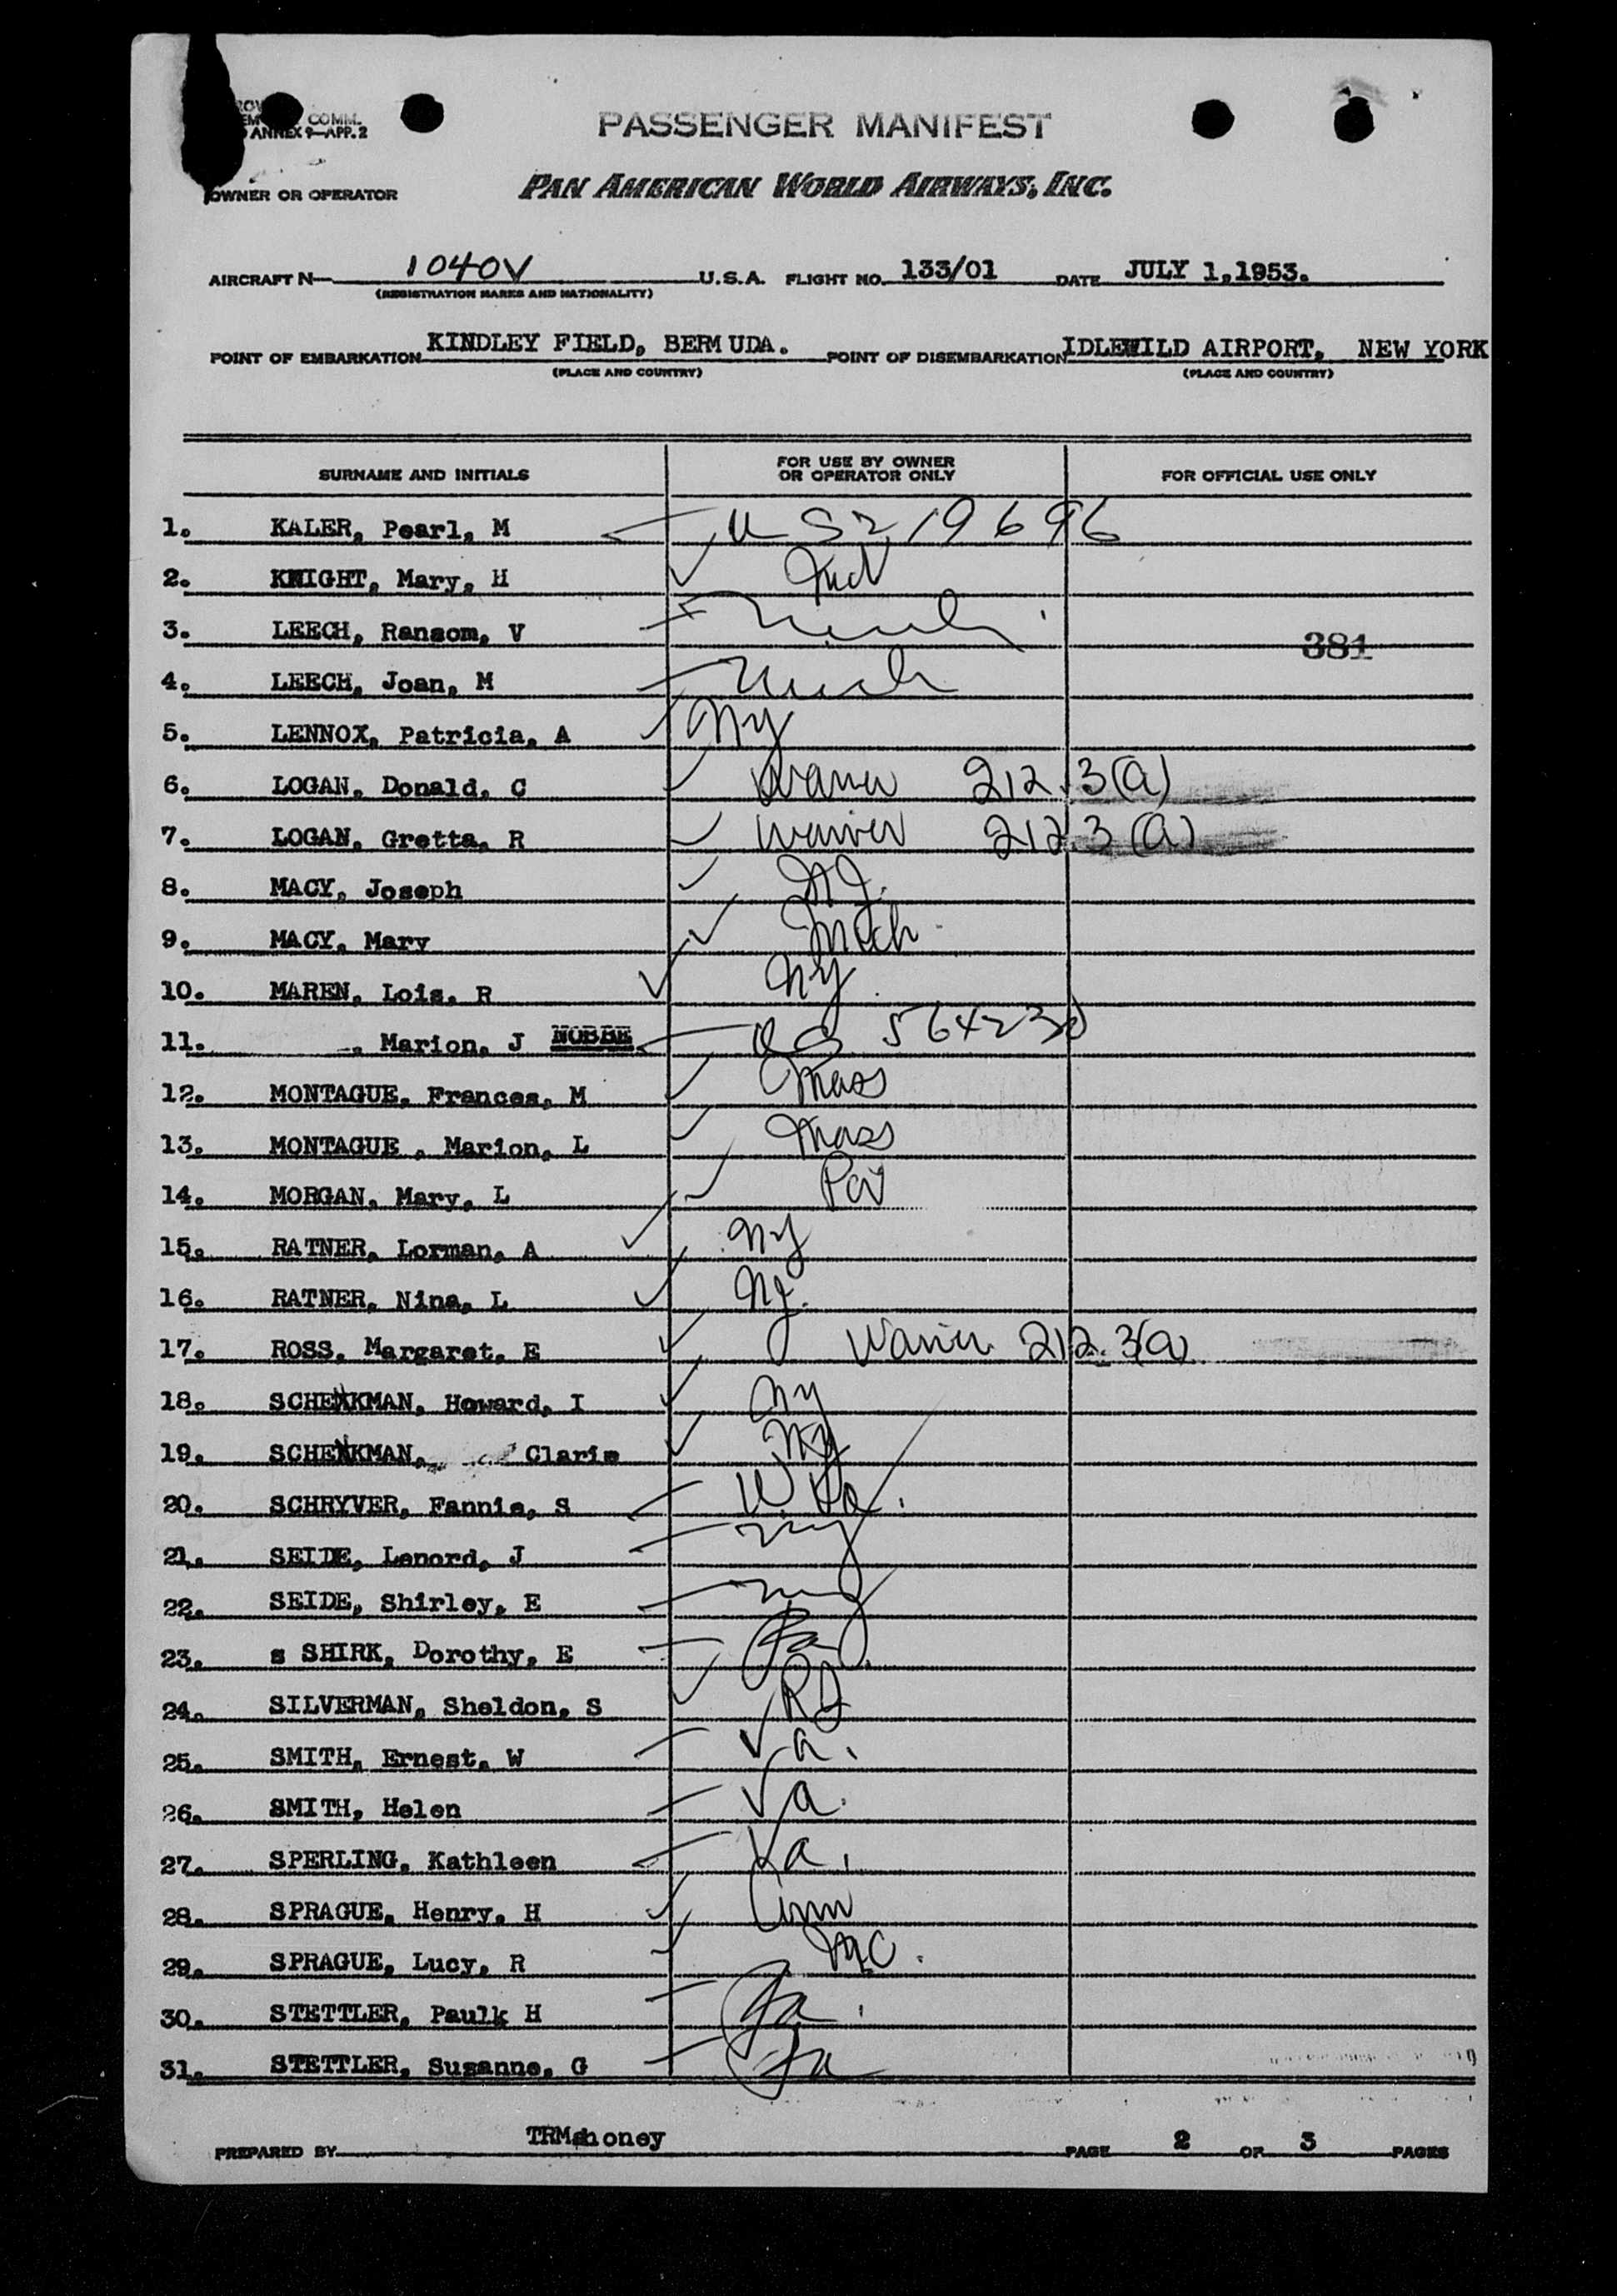 COMM.
ANNEX 9—APP. 2
PASSENGER MANIFEST
OWNER OR OPERATOR PAN AMERICAN WORLD AIRWAYS, INC.
AIRCRAFT N— 1040V U.S.A. FLIGHT NO. 133/01 DATE JULY 1,1953.
(REGISTRATION MARKS AND NATIONALITY)
POINT OF EMBARKATION KINDLEY FIELD, BERMUDA. POINT OF DISEMBARKATION IDLEWILD AIRPORT, NEW YORK
(PLACE AND COUNTRY) (PLACE AND COUNTRY)
SURNAME AND INITIALS FOR USE BY OWNER OR OPERATOR ONLY FOR OFFICIAL USE ONLY
1. KALER, Pearl, M U S219696
2. KNIGHT, Mary, H Ind
3. LEECH, Ransom, V 381
4. LEECH, Joan, M Mich
5. LENNOX, Patricia, A NY
6. LOGAN, Donald, C Waiver 212.3(a)
7. LOGAN, Gretta, R Waiver 212.3(a)
8. MACY, Joseph NJ.
9. MACY, Mary Mich
10. MAREN, Lois, R NY.
11. , Marion, J NOBBE US
12. MONTAGUE, Frances, M Mass
13. MONTAGUE , Marion, L Mass
14. MORGAN, Mary, L Pa
15. RATNER, Lorman, A NY
16. RATNER, Nina, L NY.
17. ROSS, Margaret, E Waiver 212.3(a)
18. SCHENKMAN, Howard, I NY
19. SCHENKMAN, Claris NY
20. SCHRYVER, Fannie, S W. Va.
21. SEIDE, Lenord, J NY
22. SEIDE, Shirley, E NY
23. s SHIRK, Dorothy, E Pa.
24. SILVERMAN, Sheldon, S RI
25. SMITH, Ernest, W Va.
26. SMITH, Helen Va.
27. SPERLING, Kathleen Va.
28. SPRAGUE, Henry, H Conn
29. SPRAGUE, Lucy, R NC.
30. STETTLER, Paulk H
31. STETTLER, Suzanne, G
PREPARED BY TRMahoney PAGE 2 OF 3 PAGES